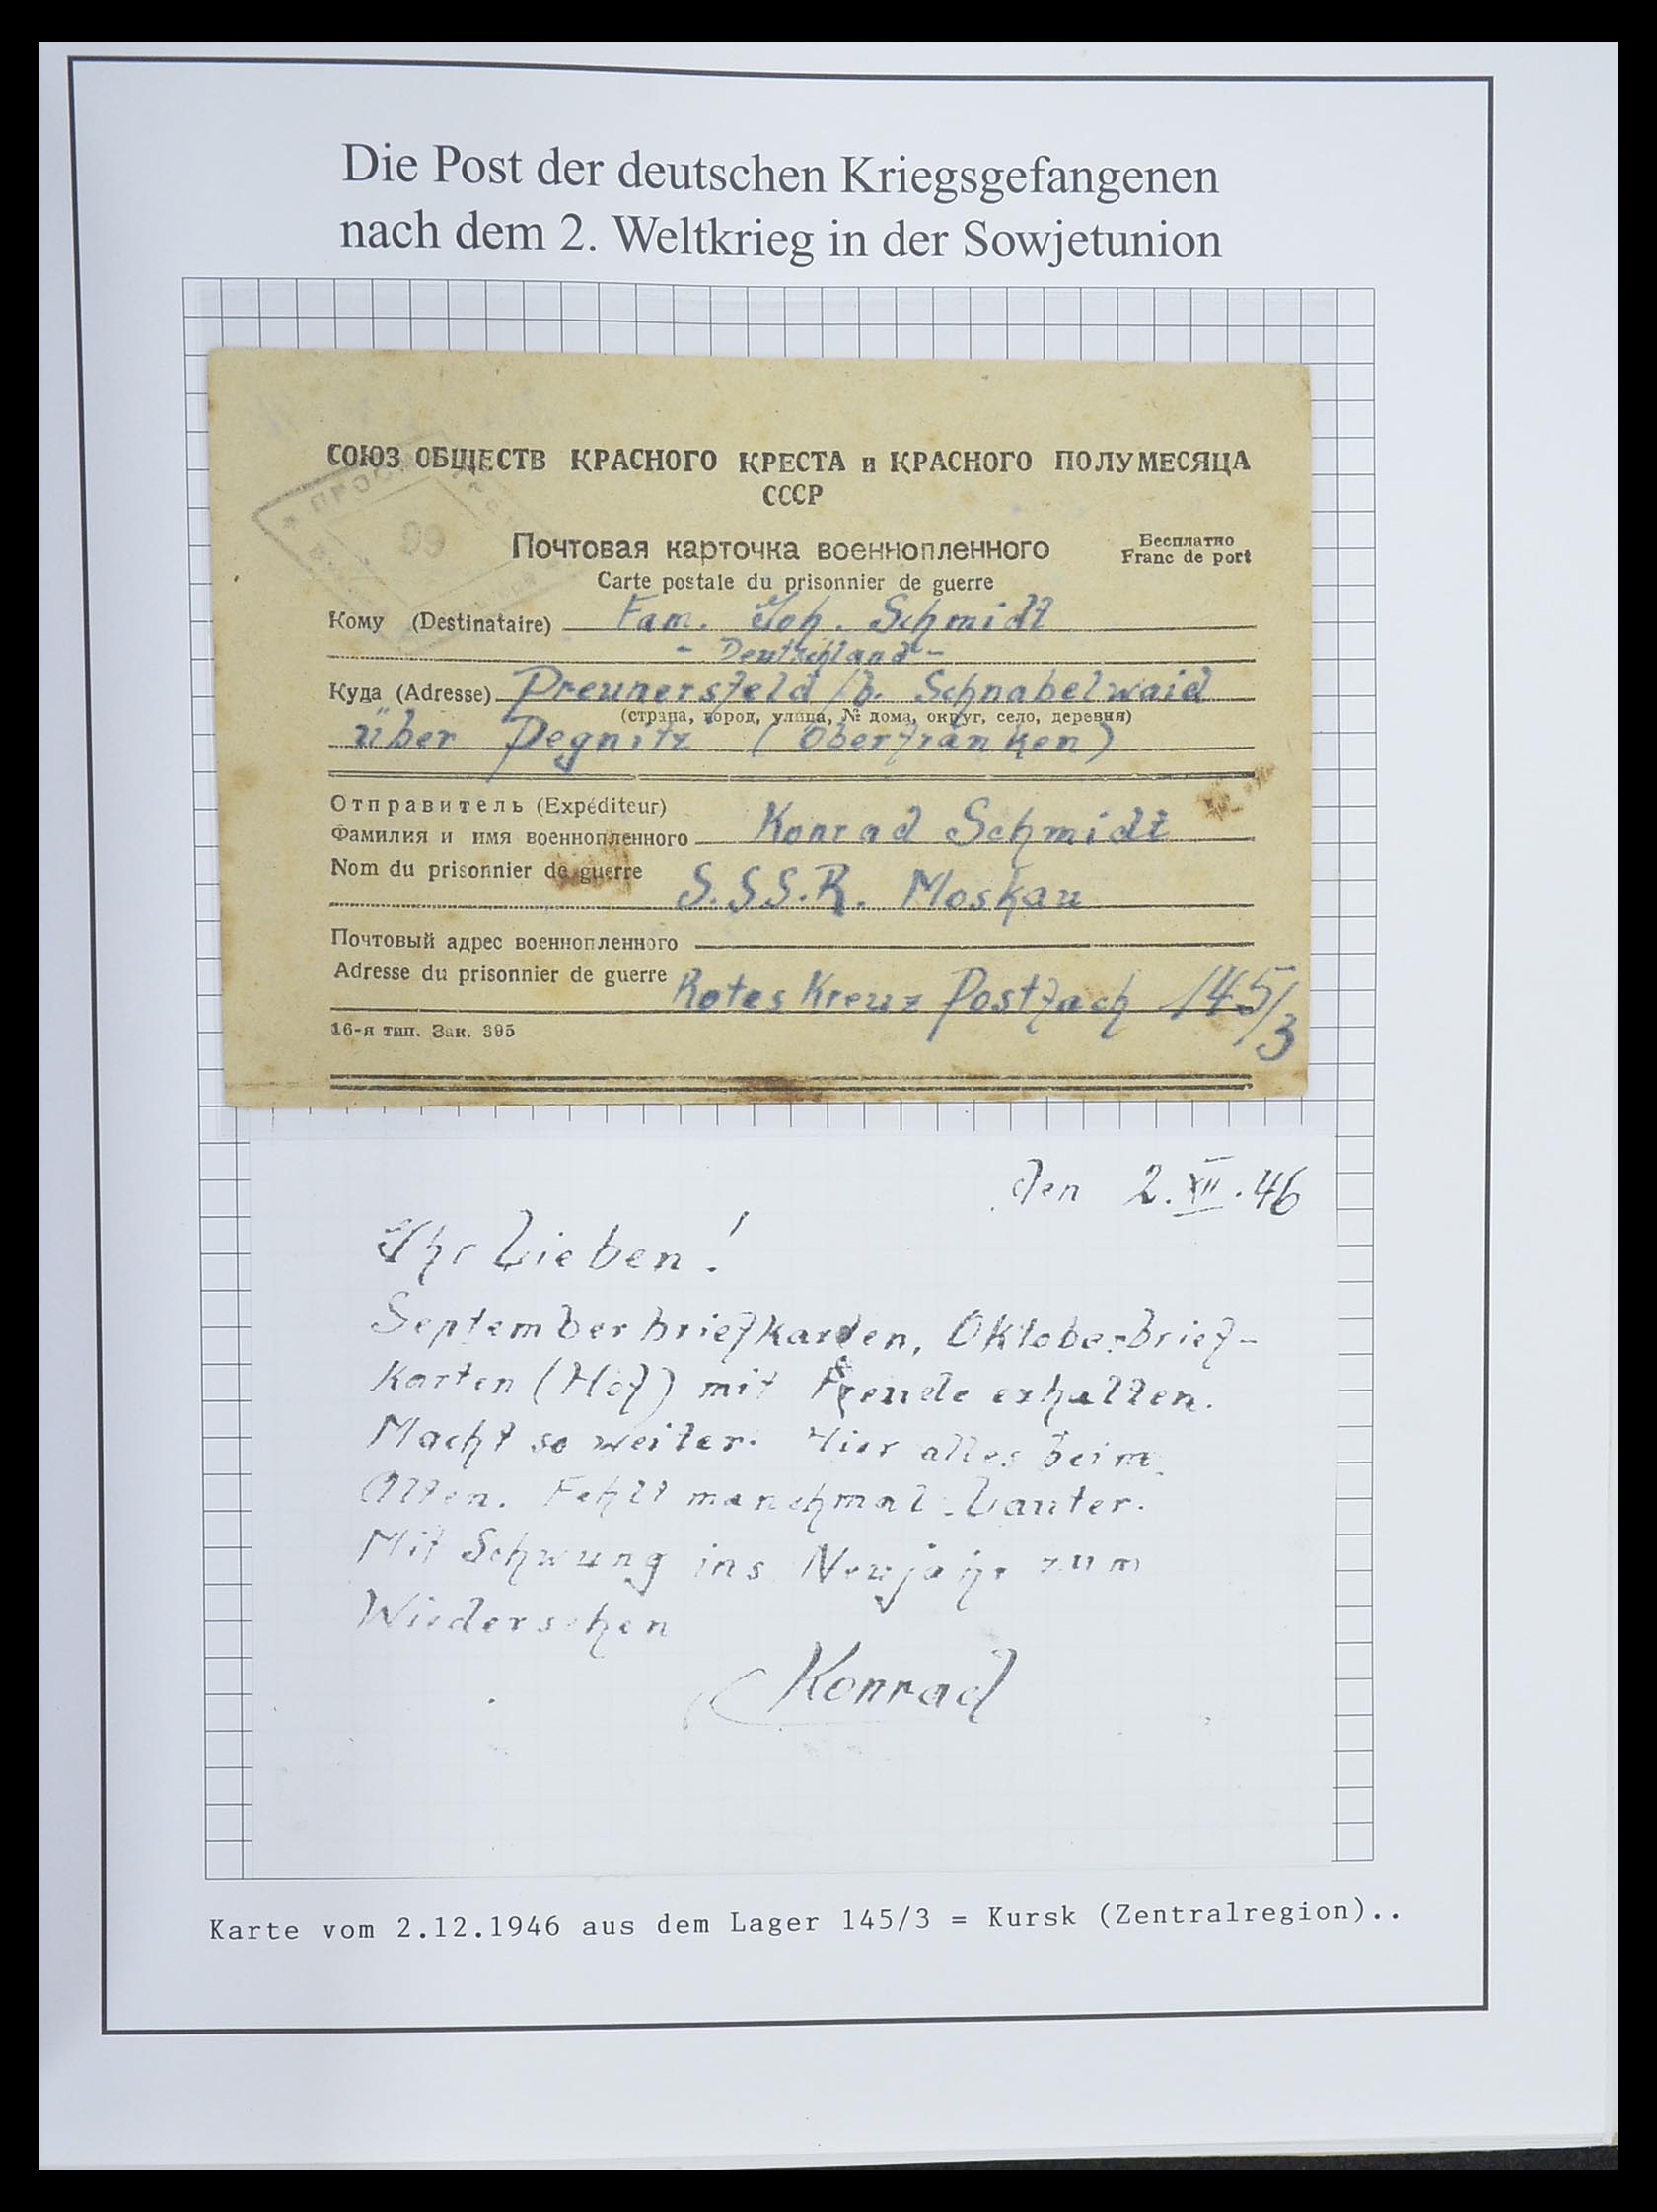 Die Post der deutschen Kriegsgefangenen
nach dem 2. Weltkrieg in der Sowjetunion
СОЮЗ ОБЩЕСТВ КРАСНОГО КРЕСТА и КРАСНОГО ПОЛУМЕСЯЦА
СССР
Почтовая карточка военнопленного
Бесплатно
Franc de port
Carte postale du prisonnier de guerre
09
Кому (Destinataire) Fam. Joh. Schmidt
- Deutschland -
Куда (Adresse) Preunersfeld /b. Schnabelwaid
(страна, город, улица, № дома, округ, село, деревня)
über Pegnitz (Oberfranken)
Отправитель (Expéditeur)
Фамилия и имя военнопленного Konrad Schmidt
Nom du prisonnier de guerre
S.S.S.R. Moskau
Почтовый адрес военнопленного
Adresse du prisonnier de guerre Rotes Kreuz Postfach 145/3
16-я тип. Зак. 395
den 2.XII.46
Ihr Lieben!
Septemberbriefkarten, Oktoberbrief-
karten (Hof) mit Freude erhalten.
Macht so weiter. Hier alles beim
Alten. Fehlt manchmal Lauter.
Mit Schwung ins Neujahr zum
Wiedersehen
Konrad
Karte vom 2.12.1946 aus dem Lager 145/3 = Kursk (Zentralregion)..